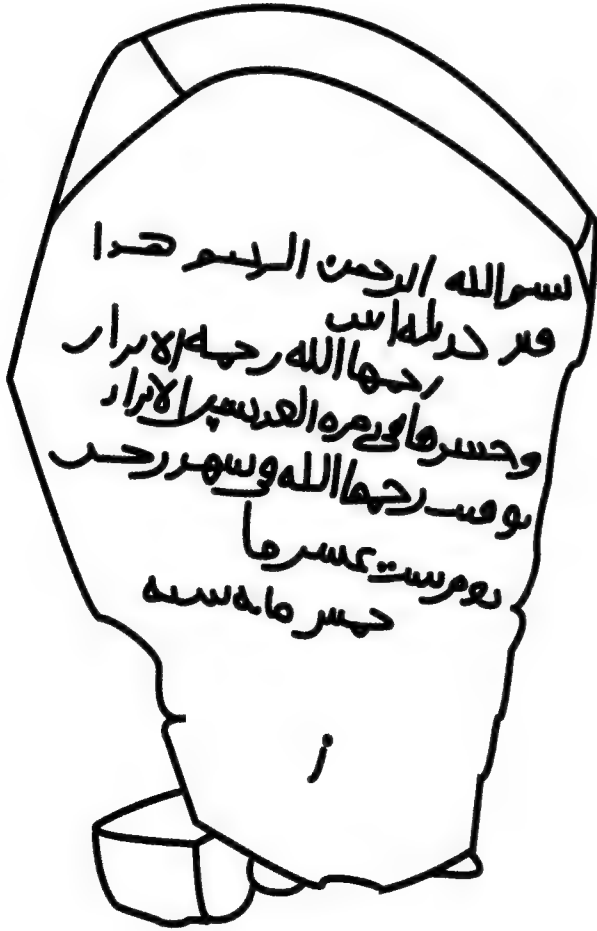 بسم الله الرحمن الرحيم هدا
قبر خديجه ابنت
رحمها الله رحمه الابرار
وحشرها في زمره القديسين الابرار
توفيت رحمها الله في شهر رجب
يوم ست عشر ما
خمس مايه سنه